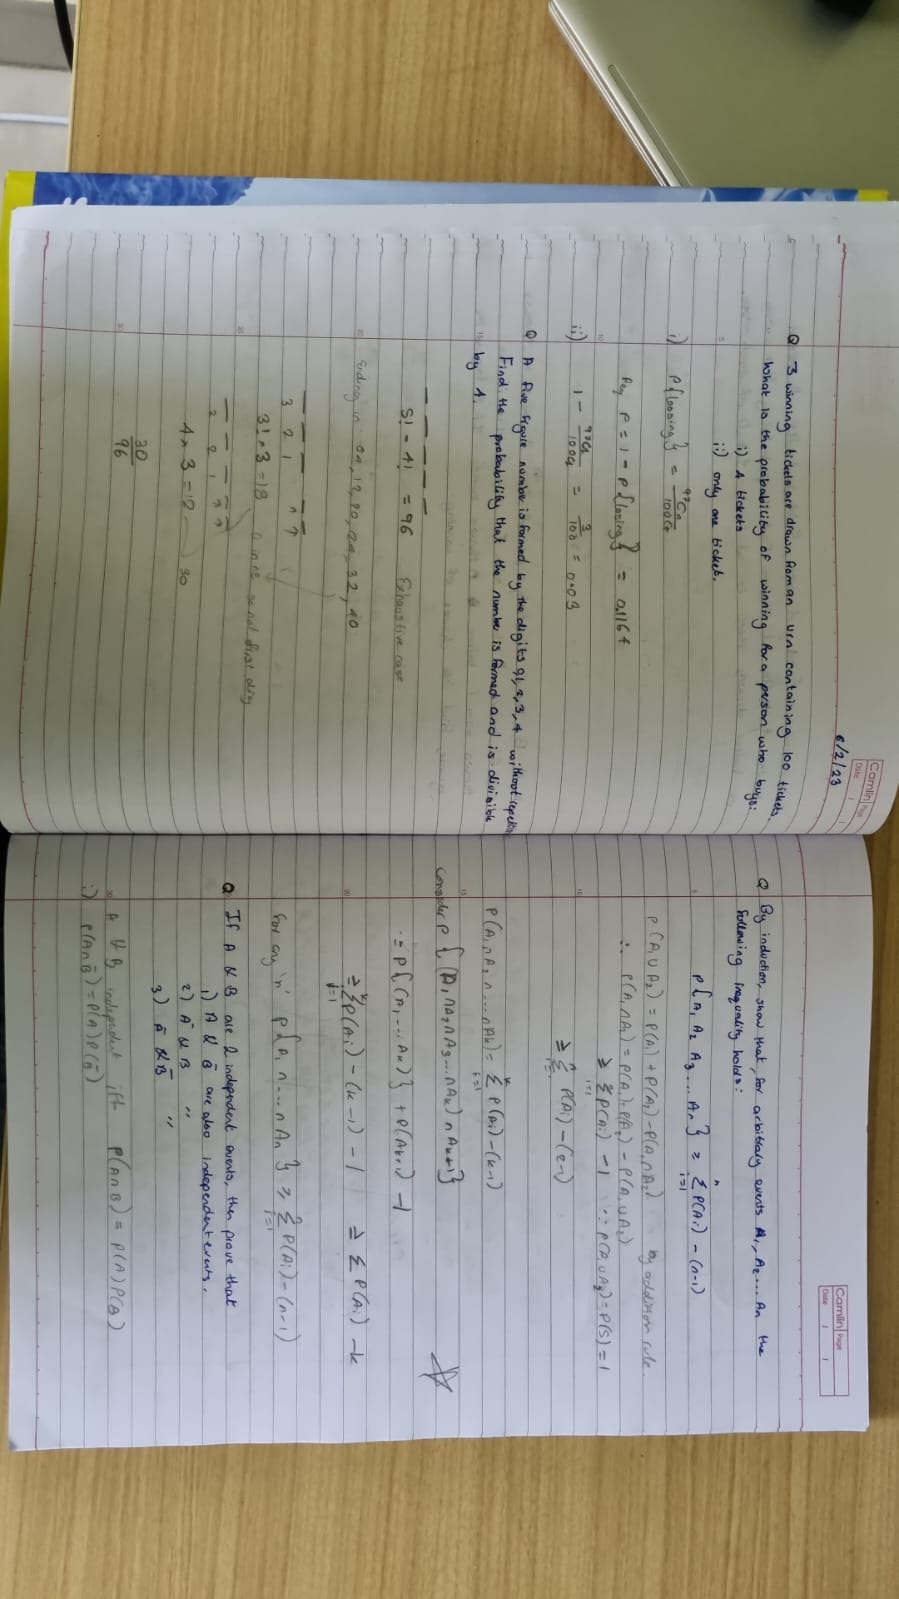 Camlin Page
Date / /
6/2/23
Q 3 winning tickets are drawn from an urn containing 100 tickets.
What is the probability of winning for a person who buys:
i) 4 tickets
ii) only one ticket.
i) P{loosing} = ⁹⁷C₄ / ¹⁰⁰C₄
Req P = 1 - P{losing} = 0.1164
ii) 1 - ⁹⁷C₁ / ¹⁰⁰C₁ = 3/100 = 0.03
Q A five figure number is formed by the digits 0,1,2,3,4 without
Find the probability that the number is formed and is divisible
by 4.
5! - 4! = 96 Exhaustive case
Ending in 04, 12, 20, 24, 32, 40
3 2 1
3! × 3 = 18
2 2 1
4 × 3 = 12 30
30/96
Camlin Page
Date / /
Q By induction, show that, for arbitrary events A₁, A₂ ... An the
following inequality holds:
P{A₁ A₂ A₃ ... An} ≥ Σⁿᵢ₌₁ P(Ai) - (n-1)
P(A₁ ∪ A₂) = P(A₁) + P(A₂) - P(A₁ ∩ A₂) by addition rule.
∴ P(A₁ ∩ A₂) = P(A₁) + P(A₂) - P(A₁ ∪ A₂)
≥ Σ P(Ai) - 1 ∵ P(A ∪ A₂) = P(S) = 1
≥ Σ P(Ai) - (2-1)
P(A₁ ∩ A₂ ∩ ... ∩ Ak) = Σᵏᵢ₌₁ P(Ai) - (k-1)
Consider P{(A₁ ∩ A₂ ∩ A₃ ... ∩ Ak) ∩ Ak+1}
= P{(A₁, ... Ak)} + P(Ak+1) - 1
≥ Σᵏᵢ₌₁ P(Ai) - (k-1) - 1 ≥ Σ P(Ai) - k
For any 'n' P{A₁ ∩ ... ∩ An} ≥ Σᵢ₌₁ P(Ai) - (n-1)
Q If A & B are 2 independent events, then prove that
1) A & B̄ are also independent events.
2) Ā & B "
3) Ā & B̄ "
A & B independent iff P(A∩B) = P(A) P(B)
i) P(A∩B̄) = P(A) P(B̄)